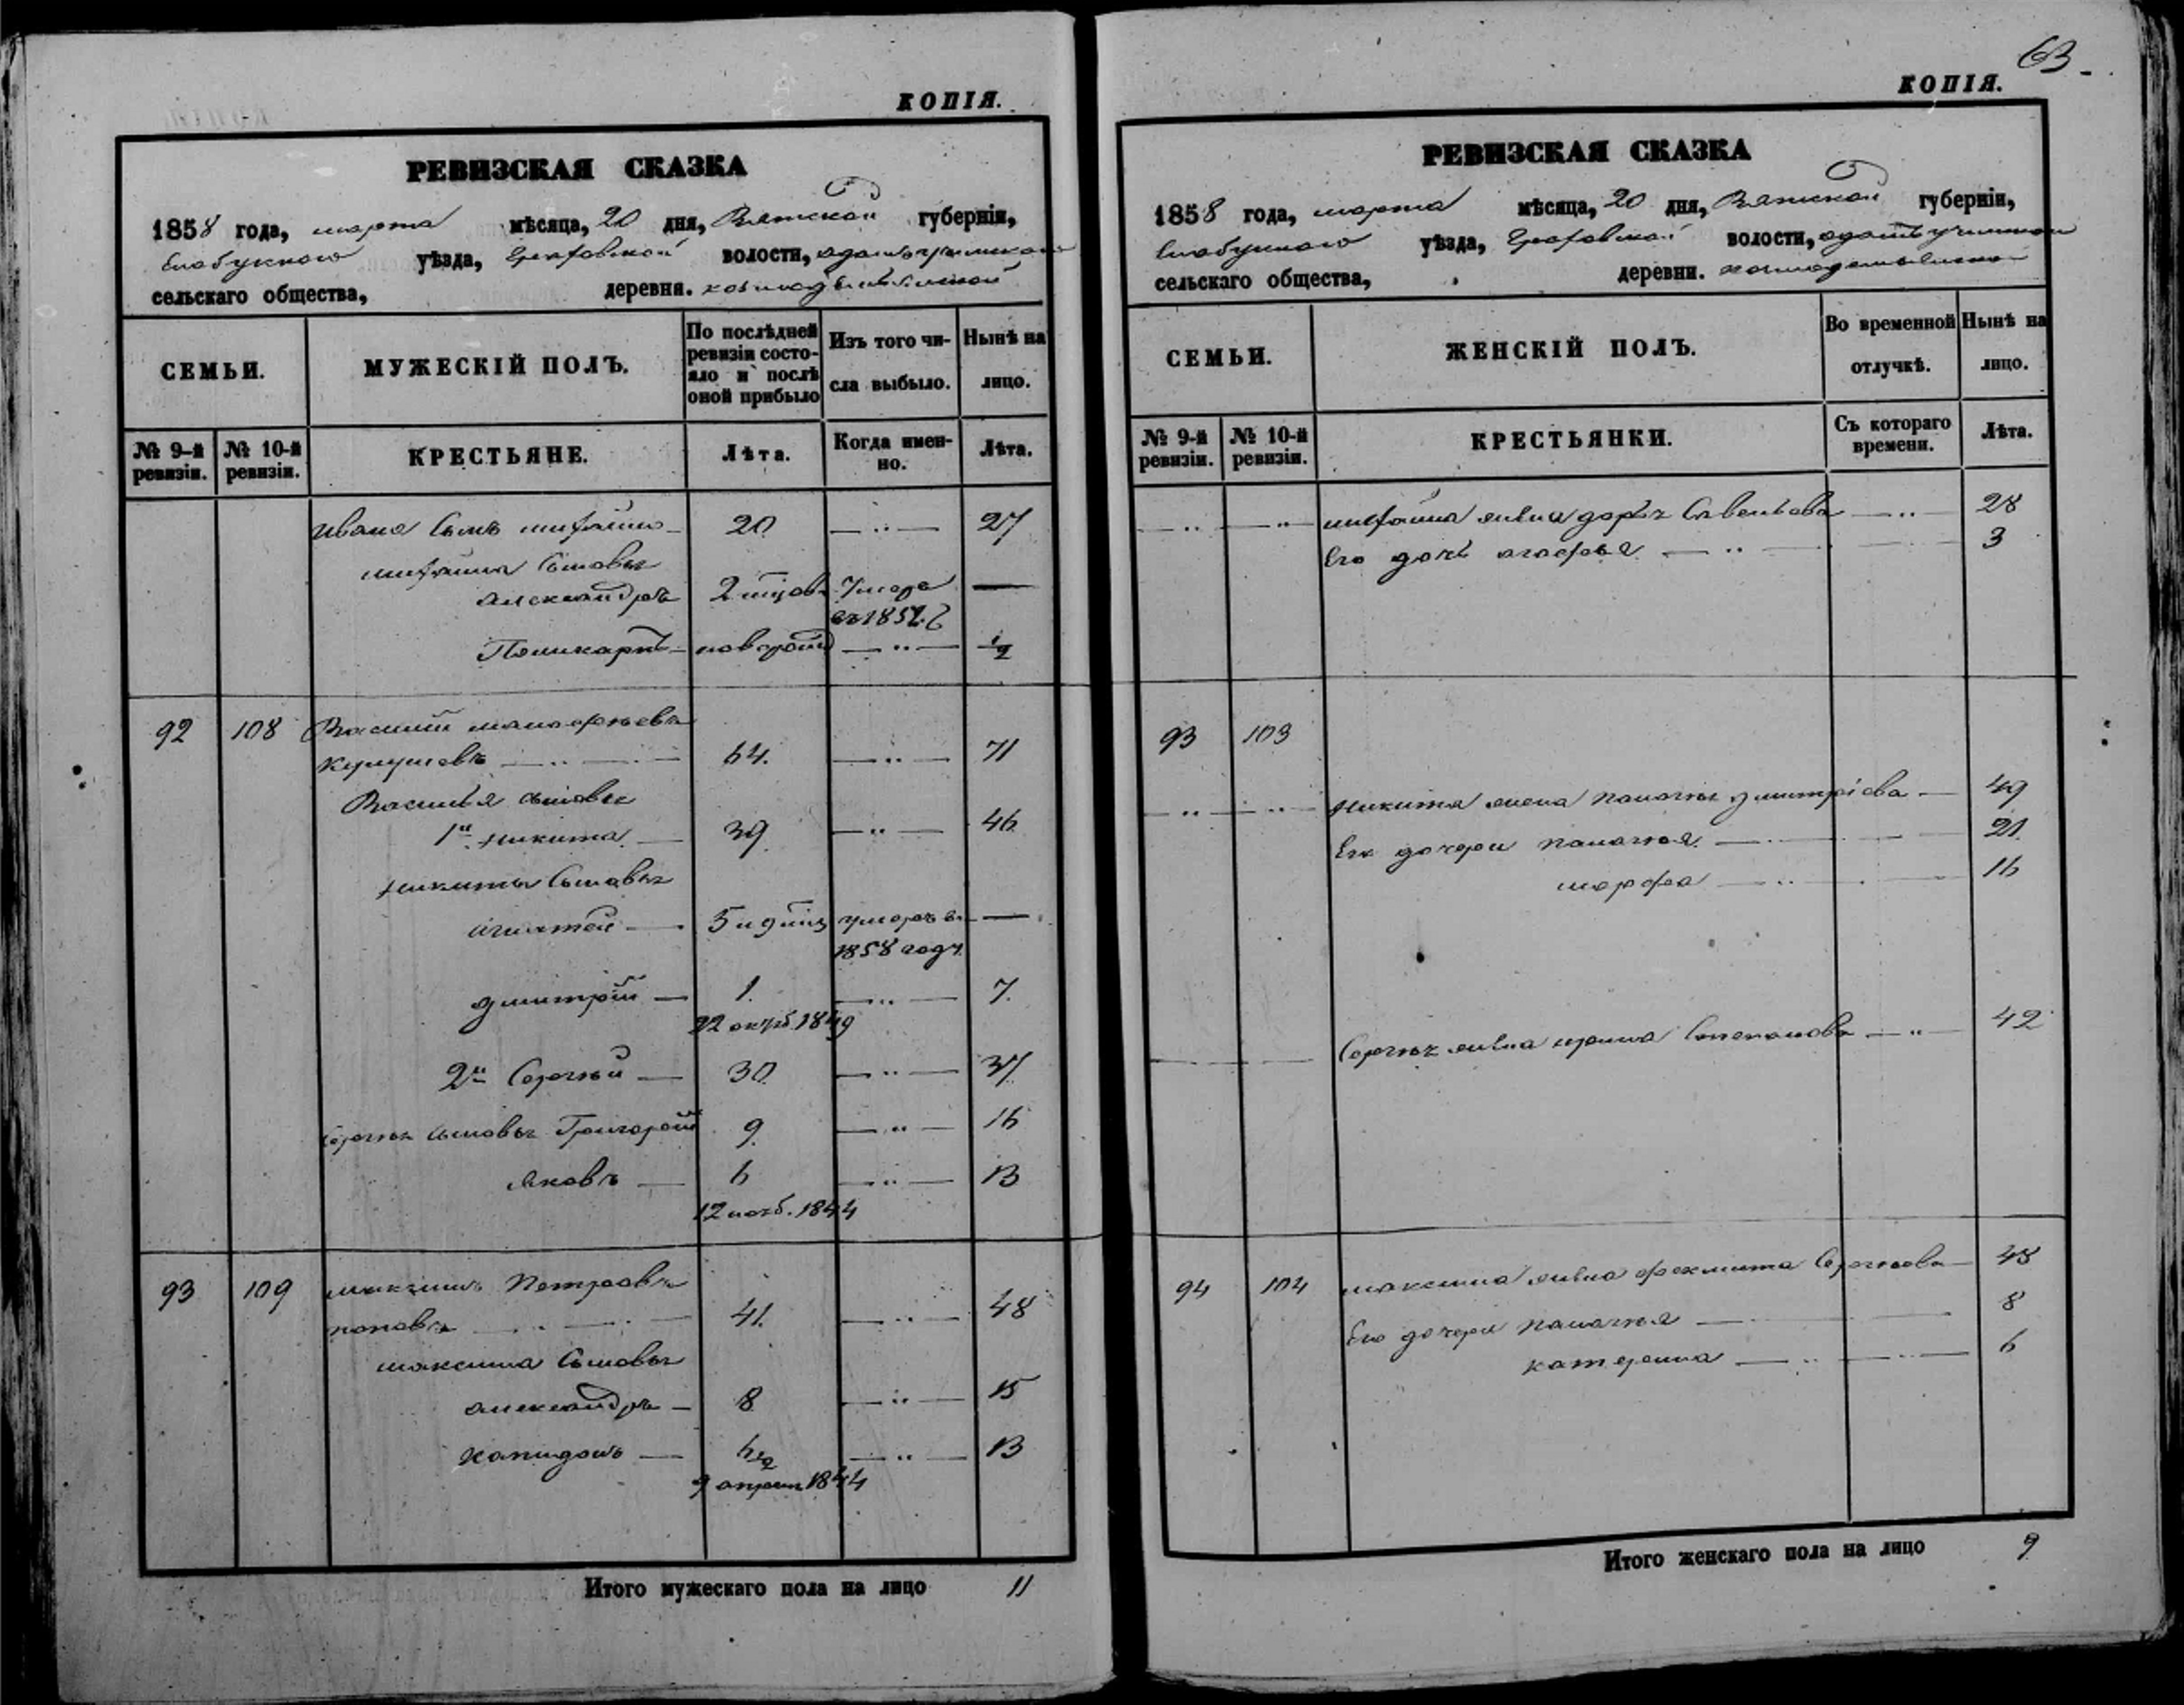 КОПІЯ.
РЕВИЗСКАЯ СКАЗКА
1858 года, марта мѣсяца, 20 дня, Вятской губерніи,
Елабужскаго уѣзда, Граховской волости,
сельскаго общества, деревни. козмодемьянской
СЕМЬИ. МУЖЕСКІЙ ПОЛЪ. По послѣдней ревизіи состояло и послѣ оной прибыло Изъ того числа выбыло. Нынѣ на лицо.
№ 9-й ревизіи. № 10-й ревизіи. КРЕСТЬЯНЕ. Лѣта. Когда именно. Лѣта.
Ивана Сынъ 20 — „ — 27
Сыновья
александръ 2 Умеръ —
Поликарпъ — новорожд — „ — ½
92 108 Василий
64. — „ — 71
Василья сыновья
1й Никита — 39 — „ — 46
Никиты Сыновья
игнатей — 5 и 9 умеръ въ —
1858 году
дмитрій — 1. — „ — 7.
22 октяб. 1849
2й Сергѣй — 30 — „ — 37
Сергѣя Сыновья Григорій 9 — „ — 16
яковъ — 6 — „ — 13
12 нояб. 1844
93 109 максимъ Петровъ
поповъ 41. — „ — 48
максима Сыновья
александръ — 8 — „ — 15
капидонъ — 6½ — „ — 13
9 апреля 1844
Итого мужескаго пола на лицо 11
63
КОПІЯ.
РЕВИЗСКАЯ СКАЗКА
1858 года, марта мѣсяца, 20 дня, Вятской губерніи,
Елабужскаго уѣзда, Граховской волости,
сельскаго общества, деревни. козмодемьянской
СЕМЬИ. ЖЕНСКІЙ ПОЛЪ. Во временной отлучкѣ. Нынѣ на лицо.
№ 9-й ревизіи. № 10-й ревизіи. КРЕСТЬЯНКИ. Съ котораго времени. Лѣта.
жена дарья Савельева — „ — 28
Его дочь агафья — „ — 3
93 103
Никиты жена палагѣя дмитріева — 49
Его дочери палагѣя — 21
марфа — „ — 16
Сергѣя жена ирина Степанова — „ — 42
94 104 максима жена Сергѣева — 48
Его дочери палагѣя — 8
катерина — „ — 6
Итого женскаго пола на лицо 9